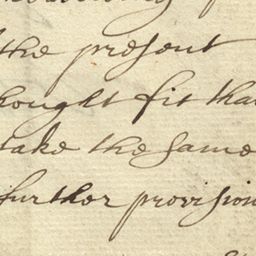 the preſent
hought fit that
take the same
further proviſion